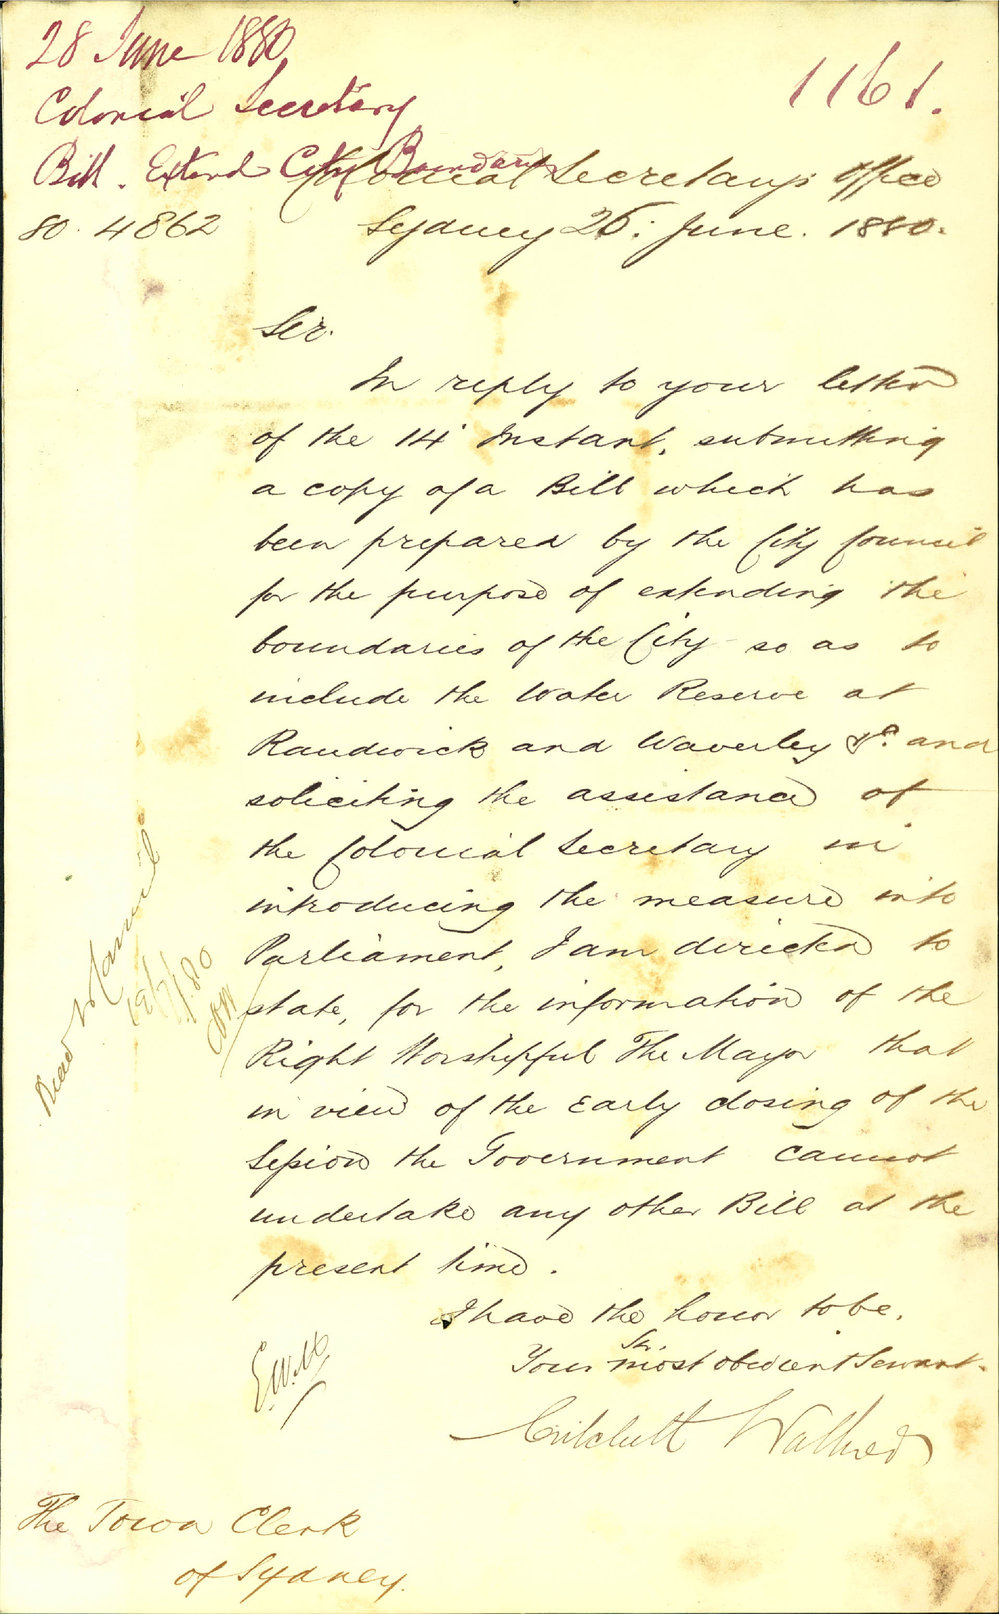 28 June 1880
1161.
Colonial Secretary
Bill. Extend City Boundaries
Colonial Secretary's Office
80.4862
Sydney 26: June. 1880.
Sir.
In reply to your letter
of the 14' Instant, submitting
a copy of a Bill which has
been prepared by the City Council
for the purpose of extending the
boundaries of the City so as to
include the Water Reserve at
Randwick and Waverley &c. and
soliciting the assistance of
the Colonial Secretary in
introducing the measure into
Parliament, I am directed to
state, for the information of the
Right Worshipful The Mayor that
in view of the Early closing of the
Session the Government cannot
undertake any other Bill at the
present time.
I have the honor to be,
Sir,
Your most obedient Servant.
Critchett Walker
E.W.M
The Town Clerk
of Sydney.
Read